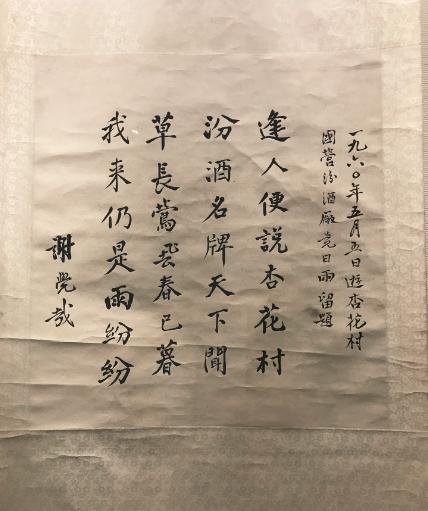 一九六〇年五月五日遊杏花村
國營汾酒廠竟日雨留題
逢人便説杏花村
汾酒名牌天下聞
草長鶯飛春已暮
我来仍是雨紛紛
謝覺哉